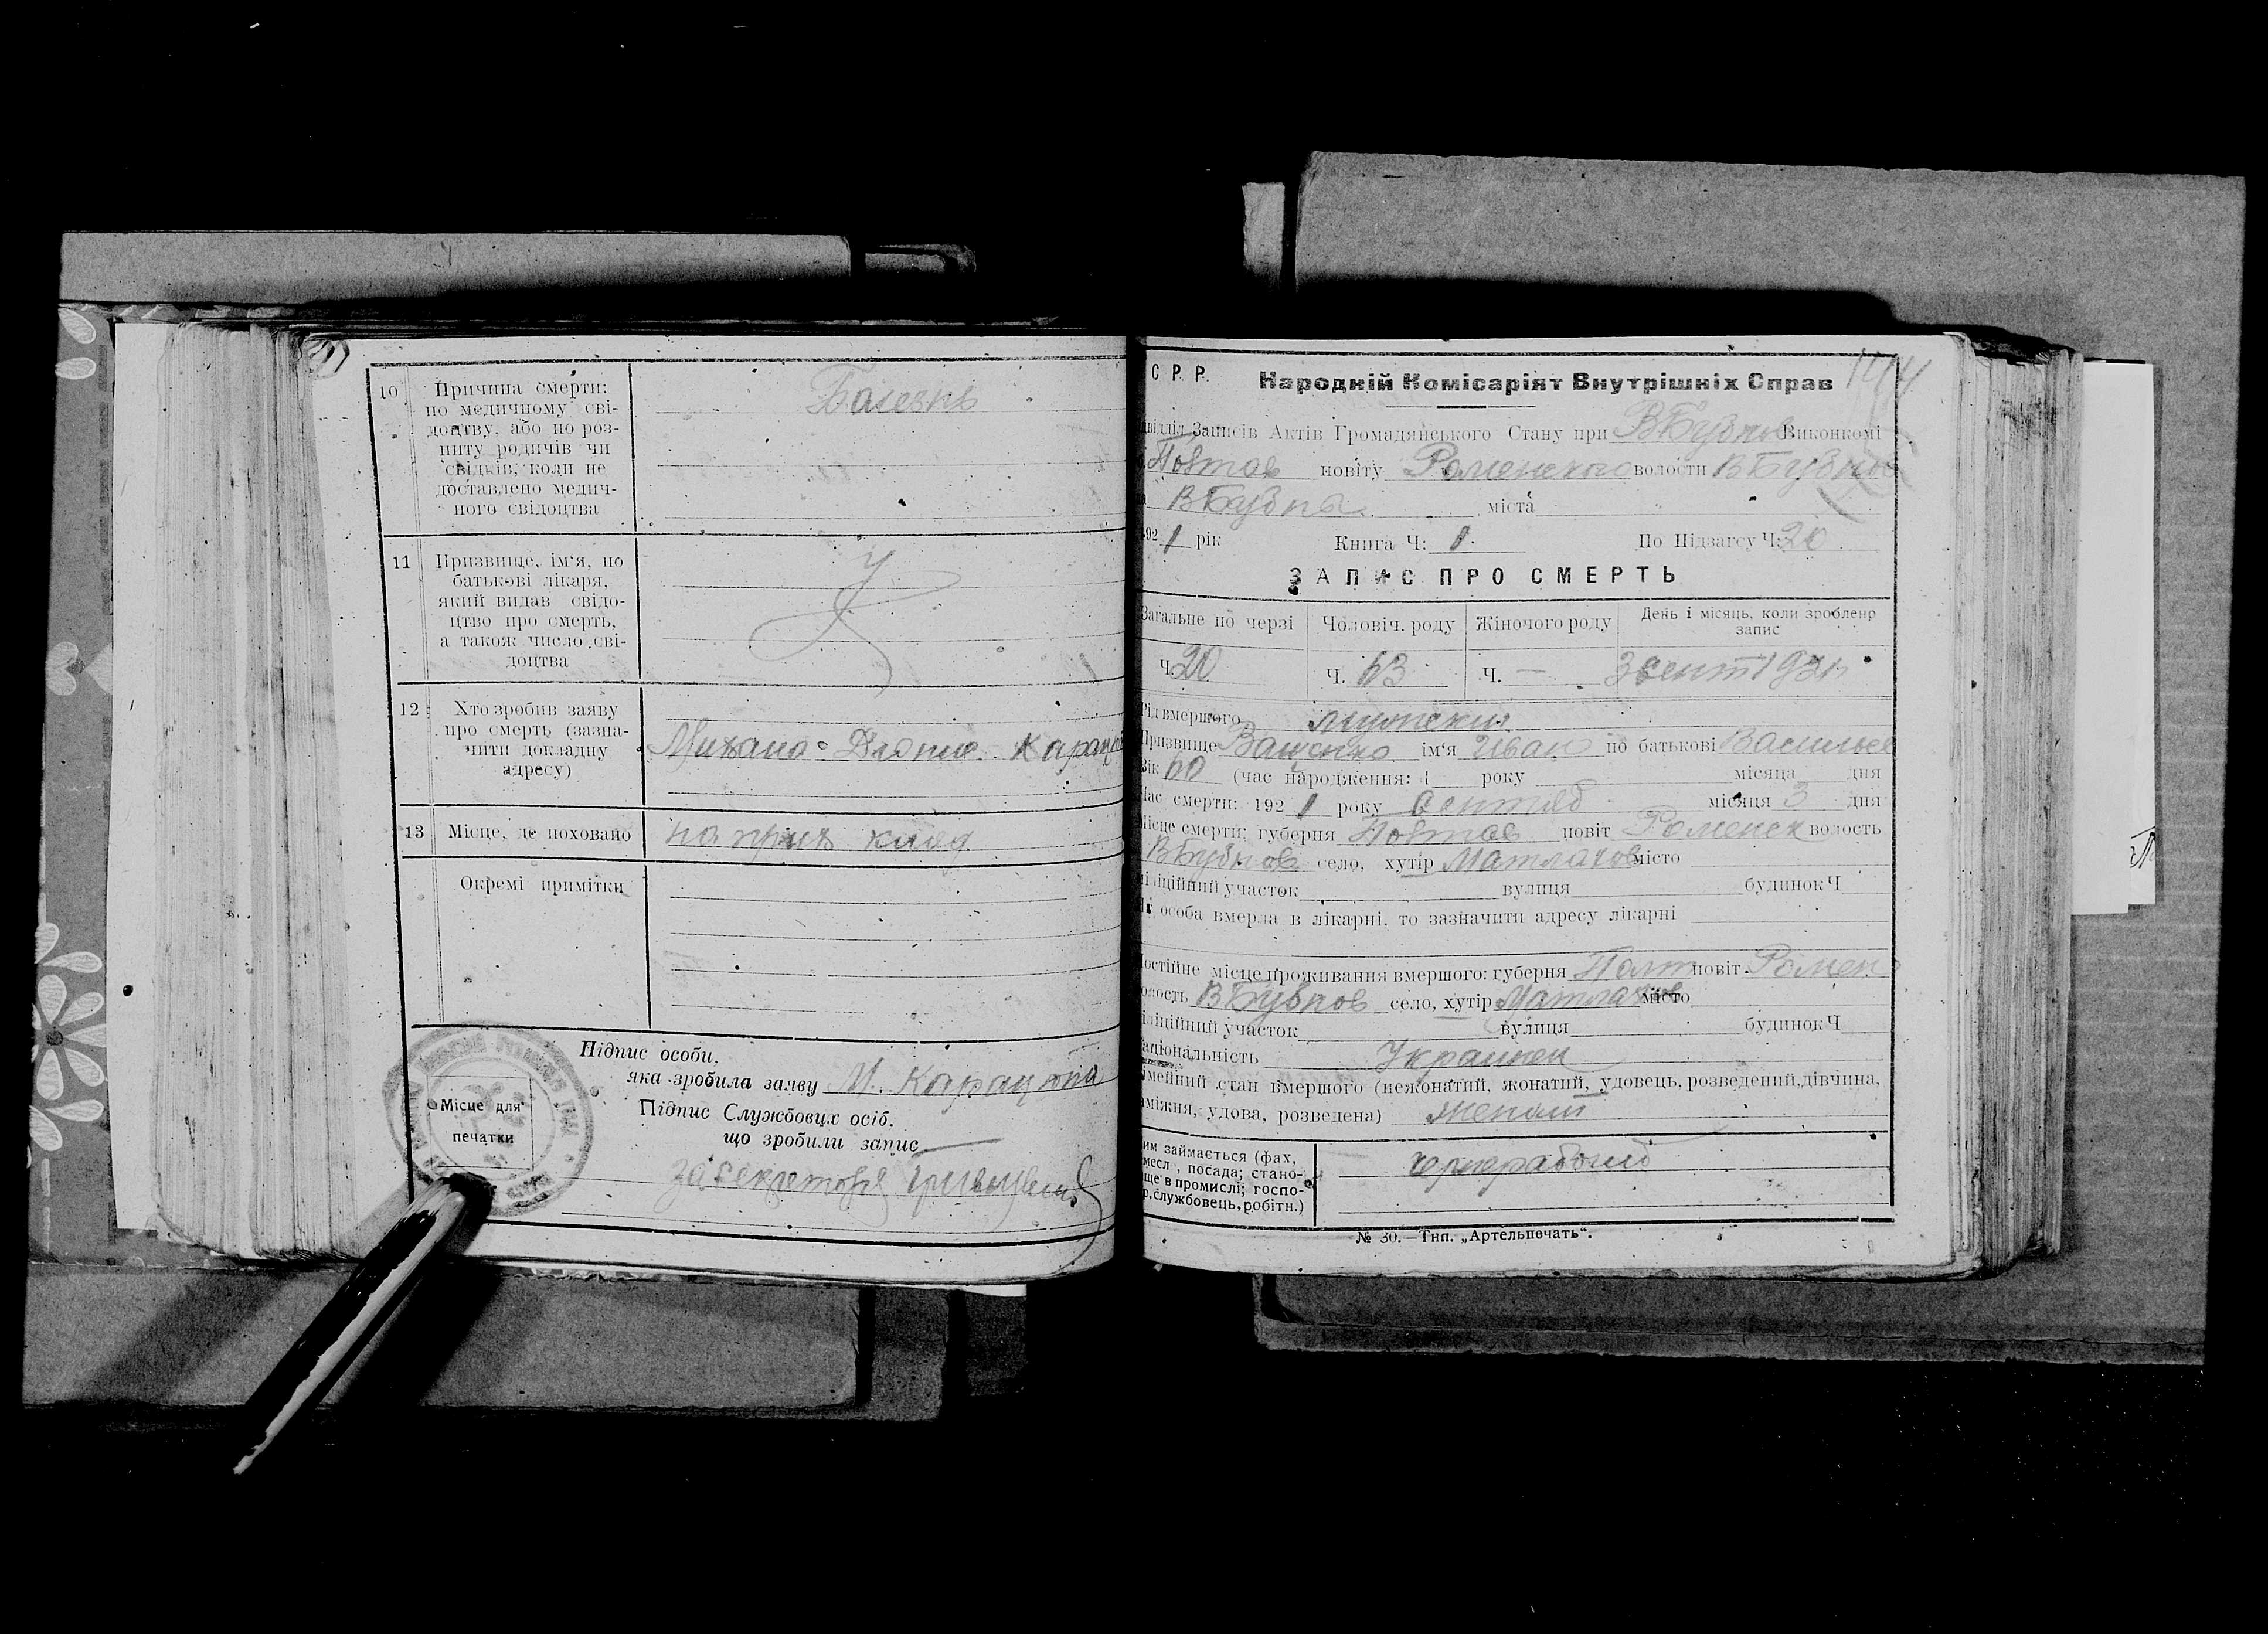 10 Причина смерти:
по медичному сві-
доцтву, або по роз-
питу родичів чи
свідків, коли не
доставлено медич-
ного свідоцтва
Болезнь
11 Призвище, ім'я, по
батькові лікаря,
який видав свідо-
цтво про смерть,
а також число сві-
доцтва
12 Хто зробив заяву
про смерть (зазна-
чити докладну
адресу)
13 Місце, де поховано
на прих клад
Окремі примітки
Підпис особи,
яка зробила заяву М.
Підпис Службовцх осіб,
що зробили запис
Місце для
печатки
за секретаря
С Р Р. Народній Комісаріят Внутрішніх Справ 144
Записів Актів Громадянського Стану при В Бубнов Виконкомі
Повтав повіту Роменского волости В Бубнов
В Бубны міста
192 1 рік Книга Ч: 1. По Підзагсу Ч: 20
ЗАПИС ПРО СМЕРТЬ
Загальне по черзі Чоловіч. роду Жіночого роду День і місяць, коли зроблено
запис
Ч. 20 Ч. 63 Ч. — 3 сент 1921
Рід вмершого мужский
Призвище Ващенко ім'я Иван по батькові Василье
Вік 60 (час народження: 1 року місяця дня
Час смерти: 192 1 року сентяб місяця 3 дня
Місце смерти: губерня Повтав повіт Роменск волость
В Бубнов село, хутір Матлахов місто
міліційний участок вулиця будинок Ч
Як особа вмерла в лікарні, то зазначити адресу лікарні
Постійне місце проживання вмершого: губерня Полт повіт Ромен
волость В Бубнов село, хутір Матлахов місто
міліційний участок вулиця будинок Ч
Національність Украинец
Сімейний стан вмершого (нежонатий, жонатий, удовець, розведений, дівчина,
заміжня, удова, розведена) женат
Чим займається (фах,
ремесл, посада; стано-
вище в промислі; госпо-
р, службовець, робітн.)
чернорабочий
№ 30.—Тип. „Артельпечать".